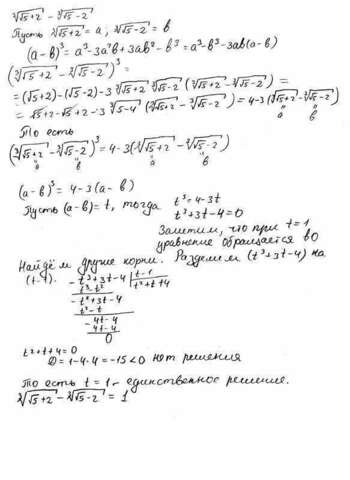 ∛(√5+2) - ∛(√5-2)
Пусть ∛(√5+2) = a, ∛(√5-2) = b
(a-b)³ = a³-3a²b+3ab²-b³ = a³-b³-3ab(a-b)
(∛(√5+2) - ∛(√5-2))³ =
= (√5+2)-(√5-2)-3 ∛(√5+2) ∛(√5-2) (∛(√5+2) - ∛(√5-2)) =
= √5+2-√5+2-3 ∛(5-4) (∛(√5+2) - ∛(√5-2)) = 4-3(∛(√5+2) - ∛(√5-2))
a b
То есть
(∛(√5+2) - ∛(√5-2))³ = 4-3(∛(√5+2) - ∛(√5-2))
a b a b
(a-b)³ = 4-3(a-b)
Пусть (a-b)=t, тогда t³=4-3t
t³+3t-4=0
Заметим, что при t=1
уравнение обращается в 0
Найдём другие корни. Разделим (t³+3t-4) на
(t-1). t³+3t-4 | t-1
t³-t² t²+t+4
-t²+3t-4
t²-t
4t-4
4t-4
0
t²+t+4=0
D=1-4·4=-15<0 нет решения
То есть t=1 - единственное решение.
∛(√5+2) - ∛(√5-2) = 1